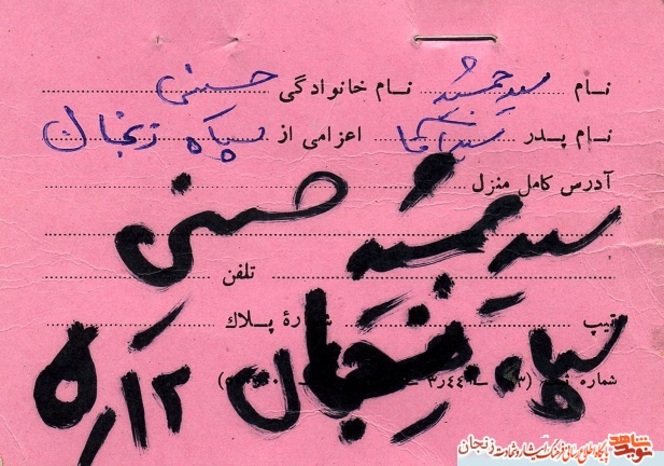 نام سید جمشید نام خانوادگی حسینی
نام پدر سید آقا اعزامی از سپاه زنجان
آدرس کامل منزل
سید جمشید حسینی
تلفن
تیپ شمارهٔ پلاك
سپاه زنجان
شماره
نوید شاهد پایگاه اطلاع رسانی فرهنگ ایثار و شهادت زنجان